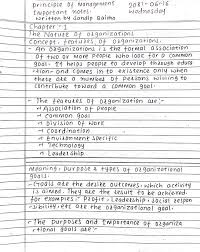 Principle of Management 2021-06-16
Important notes: Wednesday
written by Sandip Saima
Chapter: 1
The Nature of Organizations
Concept: Features of Organizations.
- An Organizations is the formal association
of two or more people who look for a common
goal. It helps people to develop through educa
-tion and comes in to existence only when
there are a number of persons willing to
contribute toward a common goal.
- The features of organization are :-
→ Association of people
→ common Goal
→ Division of work
→ Coordination
→ Environment Specific
→ Technology
→ Leadership.
Meaning, Purpose & types of organizational
goals :-
- Goals are the desire outcomes, which activity
is aimed. They are the result to be achieved
for examples:- Profit, Leadership, social respon
-sibility, etc are the organizational goal.
- The Purposes and Importance of organiza
-tional goals are :-